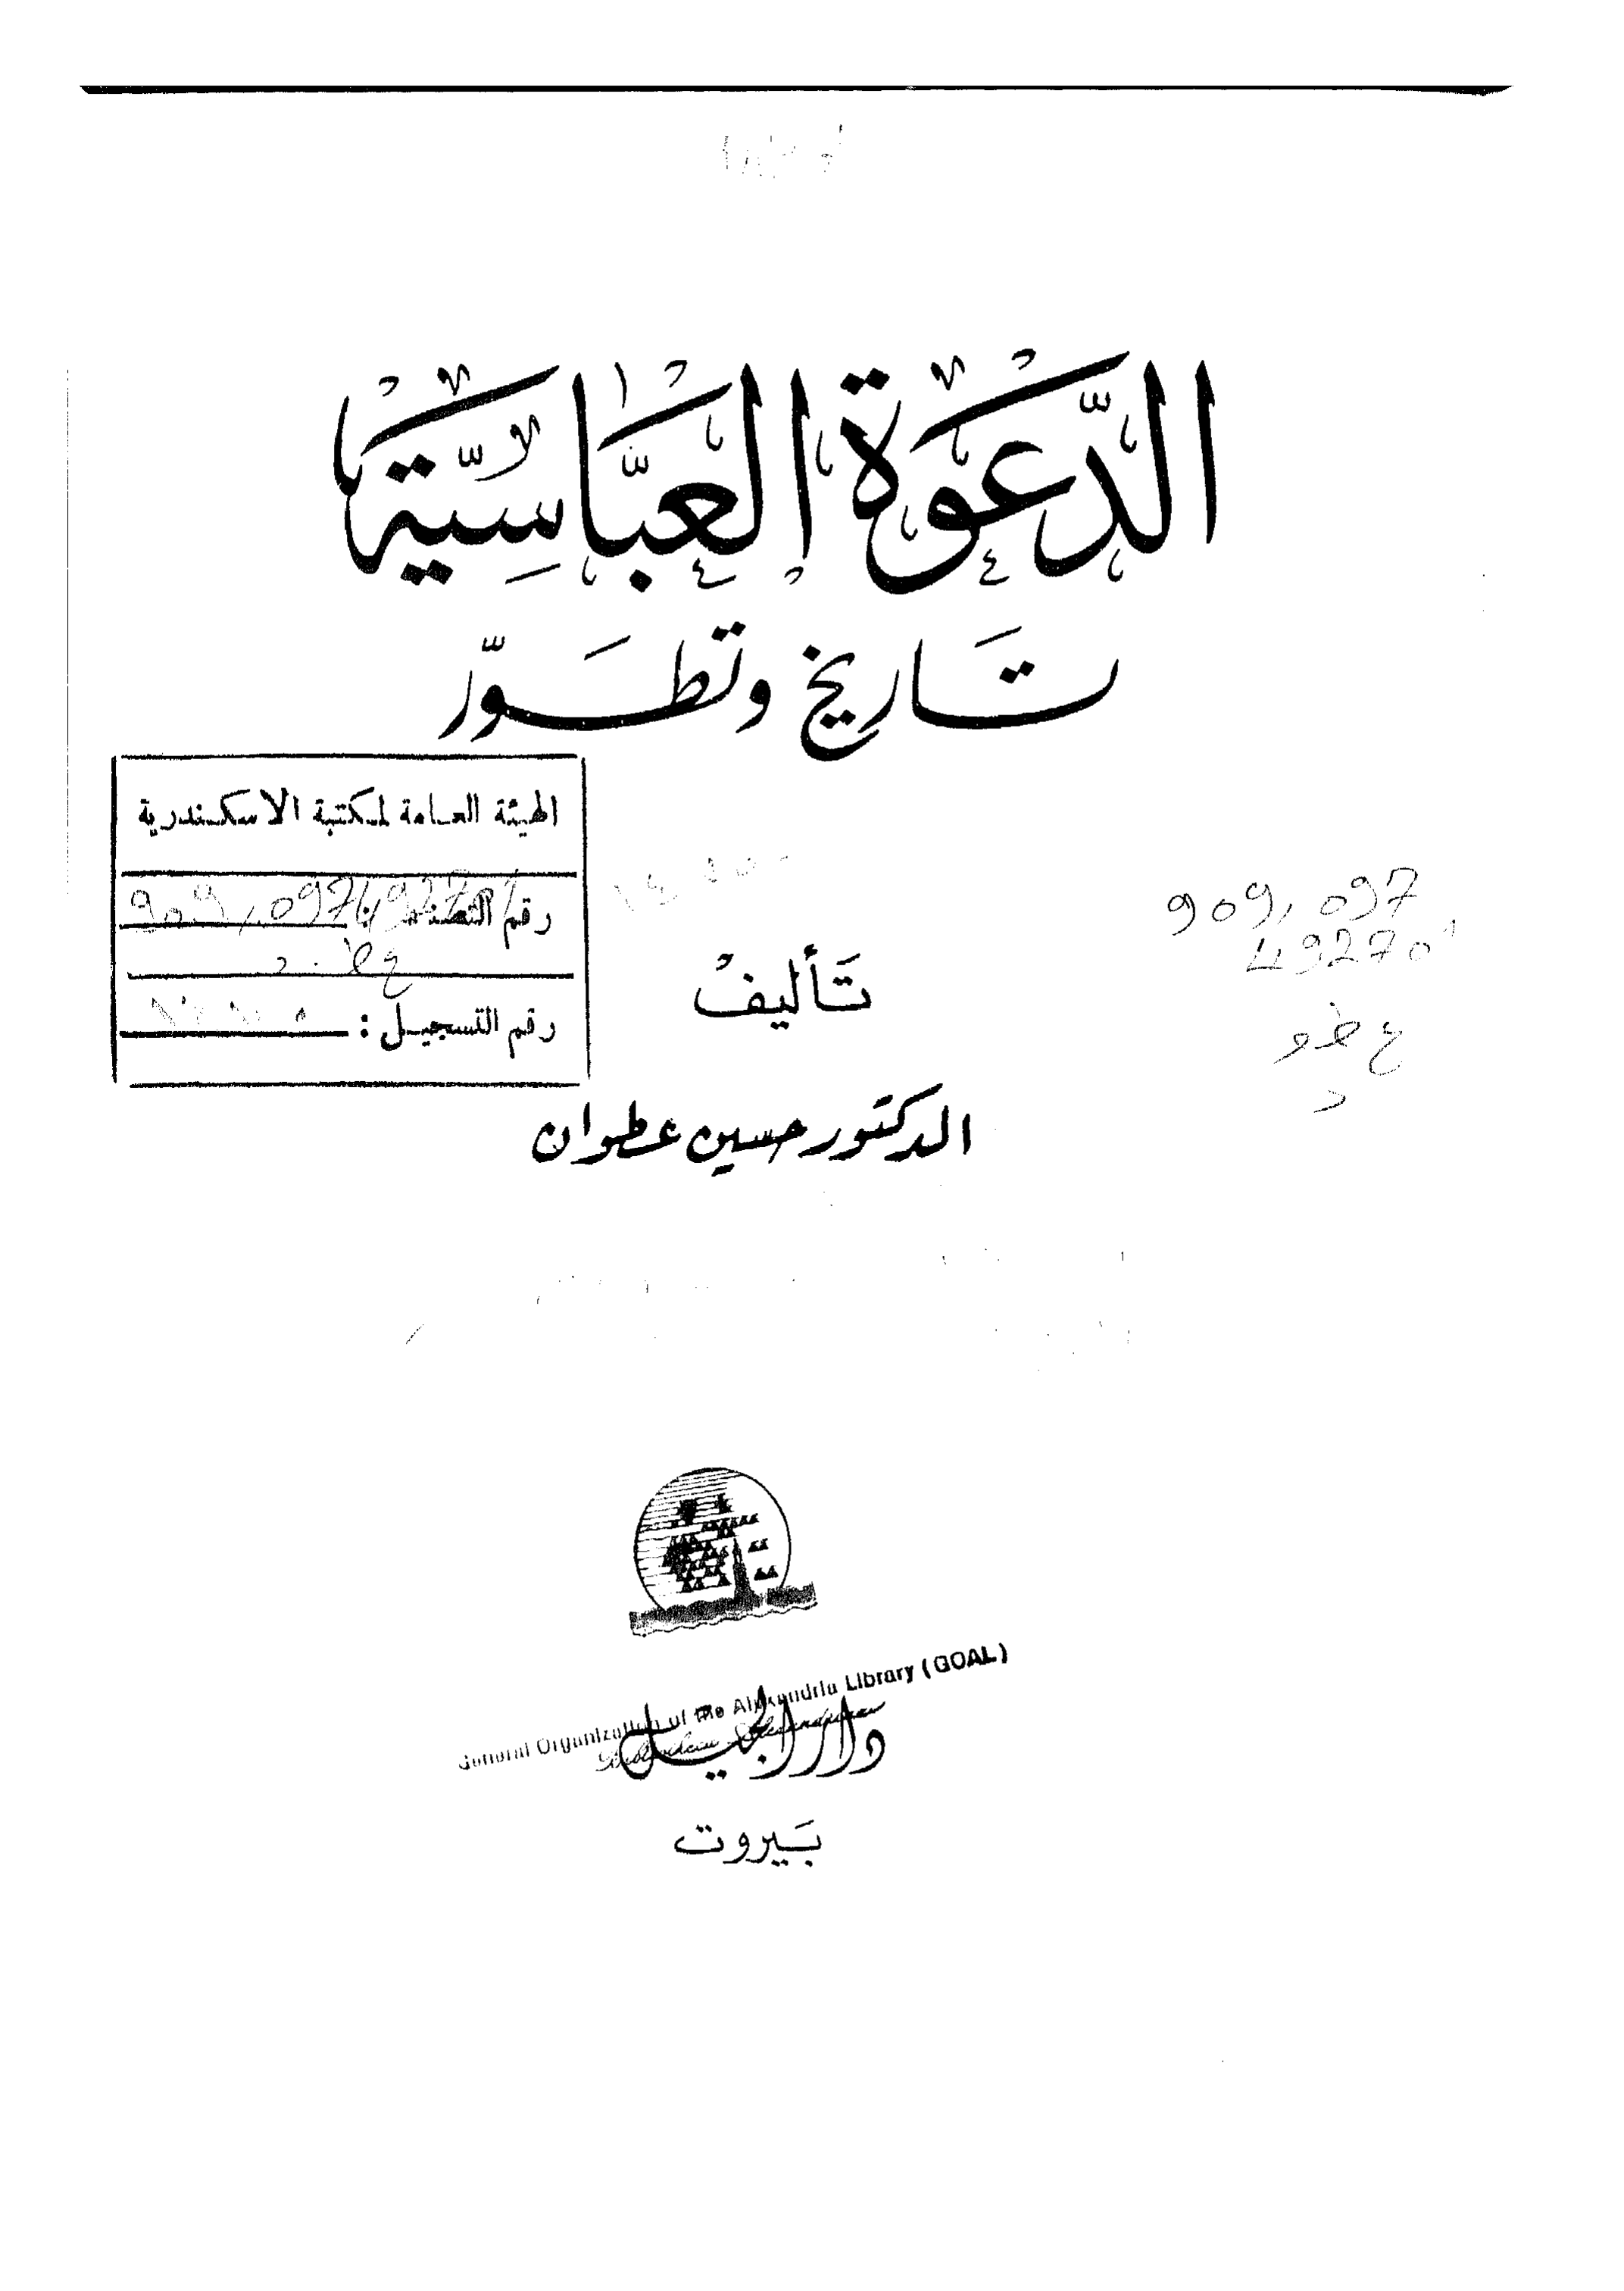 الدَّعوَة العَبَّاسِيَّة
تَاريخ وتَطَوّر
الهيئة العامة لمكتبة الاسكندرية
رقم
909,097
49270
رقم التسجيل :
تَأليفْ
الدكتور حسين عطوان
General Organization of the Alexandria Library (GOAL)
دار الجيل
بَيروت